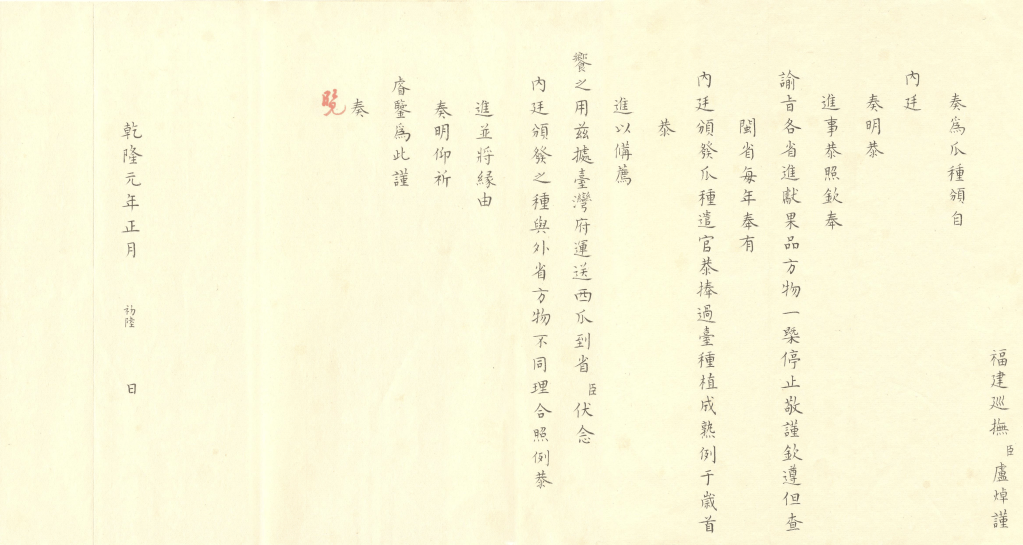 福建巡撫臣盧焯謹
奏爲瓜種頒自
內廷
奏明恭
進事恭照欽奉
諭旨各省進獻果品方物一槩停止敬謹欽遵但查
閩省每年奉有
內廷頒發瓜種遣官恭捧過臺種植成熟例于歲首
恭
進以備薦
饗之用茲據臺灣府運送西瓜到省臣伏念
內廷頒發之種與外省方物不同理合照例恭
進並將緣由
奏明仰祈
睿鑒爲此謹
奏
覽
乾隆元年正月初陸日